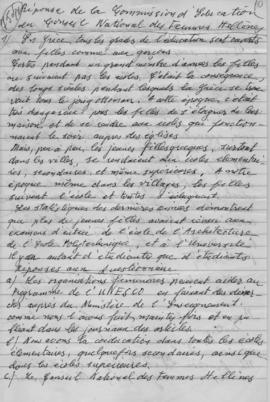 Réponse de la Commission d'Education
du Conseil National des Femmes Hellènes
1) En Grèce, tous les grades de l'éducation sont ouverts
aux filles comme aux garçons.
Certes pendant un grand nombre d'années les filles
ne suivaient pas les écoles. C'était la conséquence
des longs siècles pendant lesquels la Grèce se trou-
vait sous le joug ottoman. A cette époque c'était
fort dangereux pour les filles de s'éloigner de la
maison et de se rendre aux écoles qui fonction-
naient le soir auprès des églises.
Mais, peu à peu, les jeunes filles grecques, surtout
dans les villes, se rendaient aux écoles élémentai-
res, secondaires et même supérieures. A notre
époque même dans les villages, les filles
suivent l'école et toutes s'éduquent.
Les statistiques des dernières années démontrent
que plus de jeunes filles avaient réussi aux
examens d'entrée de l'école de l'Architecture
de l'Ecole Polytechnique, et à l'Université
il y a autant d'étudiants que d'étudiantes
Réponses au Questionnaire
a) Les organisations féminines peuvent aider au
programme de l'UNESCO en faisant des démar-
ches auprès du Ministère de l'Enseignement
comme nous l'avons fait, maintes fois et en pu-
bliant dans les journaux des articles.
b) Nous avons la coéducation dans toutes les écoles
élémentaires, quelques fois secondaires, ainsi que
dans les écoles supérieures.
c) Le Conseil National des Femmes Hellènes